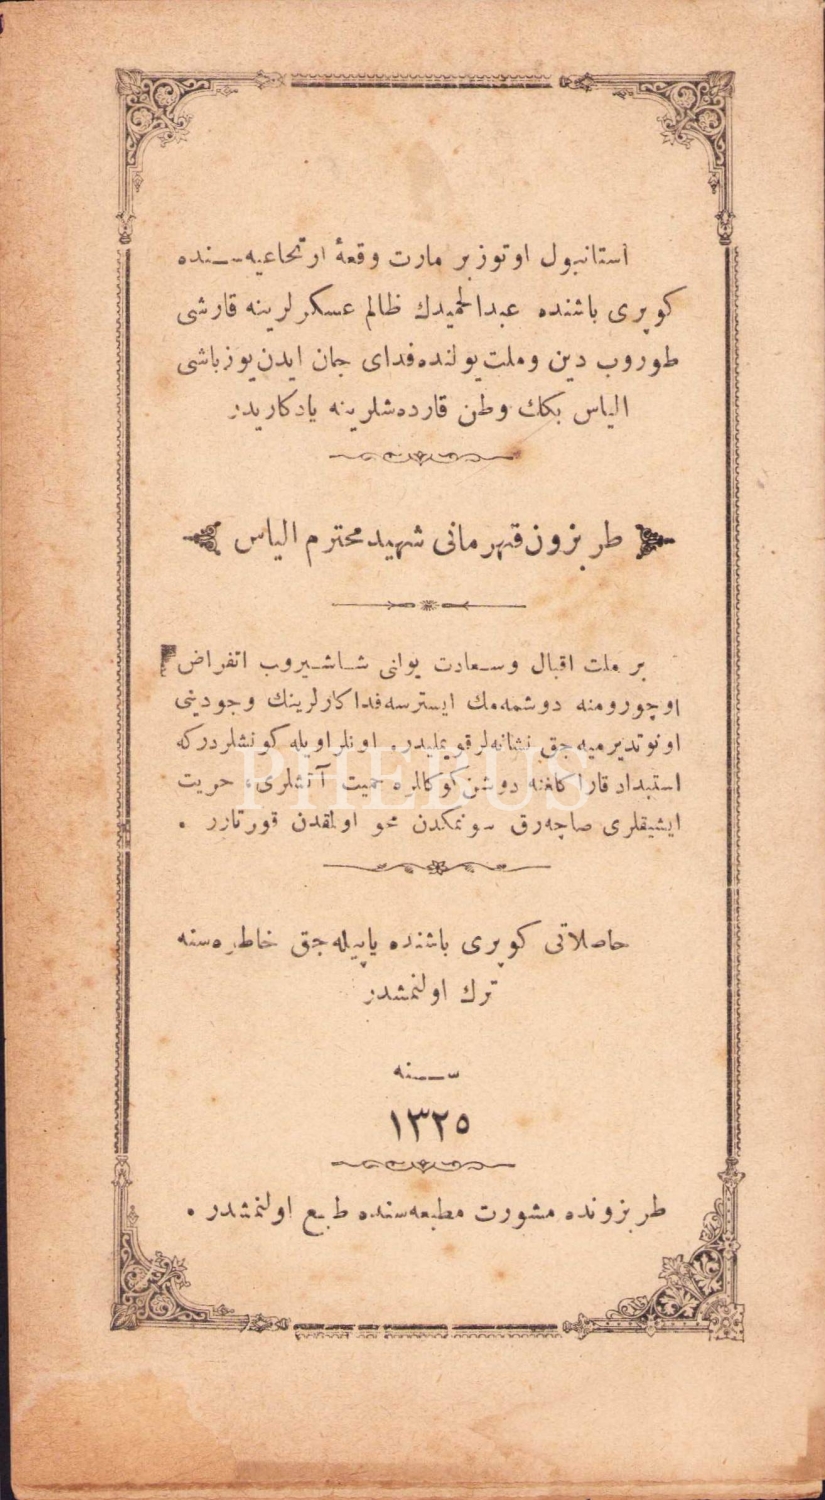 استانبول اوتوز بر مارت وقعهٔ ارتجاعیه‌سـنده
کوپری باشنده عبدالحمیدك ظالم عسکرلرینه قارشی
طوروب دین و ملت یولنده فدای جان ایدن یوزباشی
الیاس بکك وطن قارده‌شلرینه یادکاریدر
طربزون قهرمانی شهید محترم الیاس
بر ملت اقبال وسـعادت یولنی شـاشـیروب انقراض
اوچورومنه دوشمه‌مك ایسترسه فداکارلرینك وجودینی
اونوتدیرمیه‌جق نشانه‌لر قویملیدر. اونلر اویله کونشلردرکه
استبداد قارا کلغنه دوشن کوکللره حمیت آتشلری، حریت
ایشیقلری صاچه‌رق سونمکدن محو اولمقدن قورتارر .
حاصلاتی کوپری باشنده یاپیله‌جق خاطره‌سنه
ترك اولنمشدر
سـنه
١٣٢٥
طربزونده مشورت مطبعه‌سنده طبع اولنمشدر .
PHEBUS